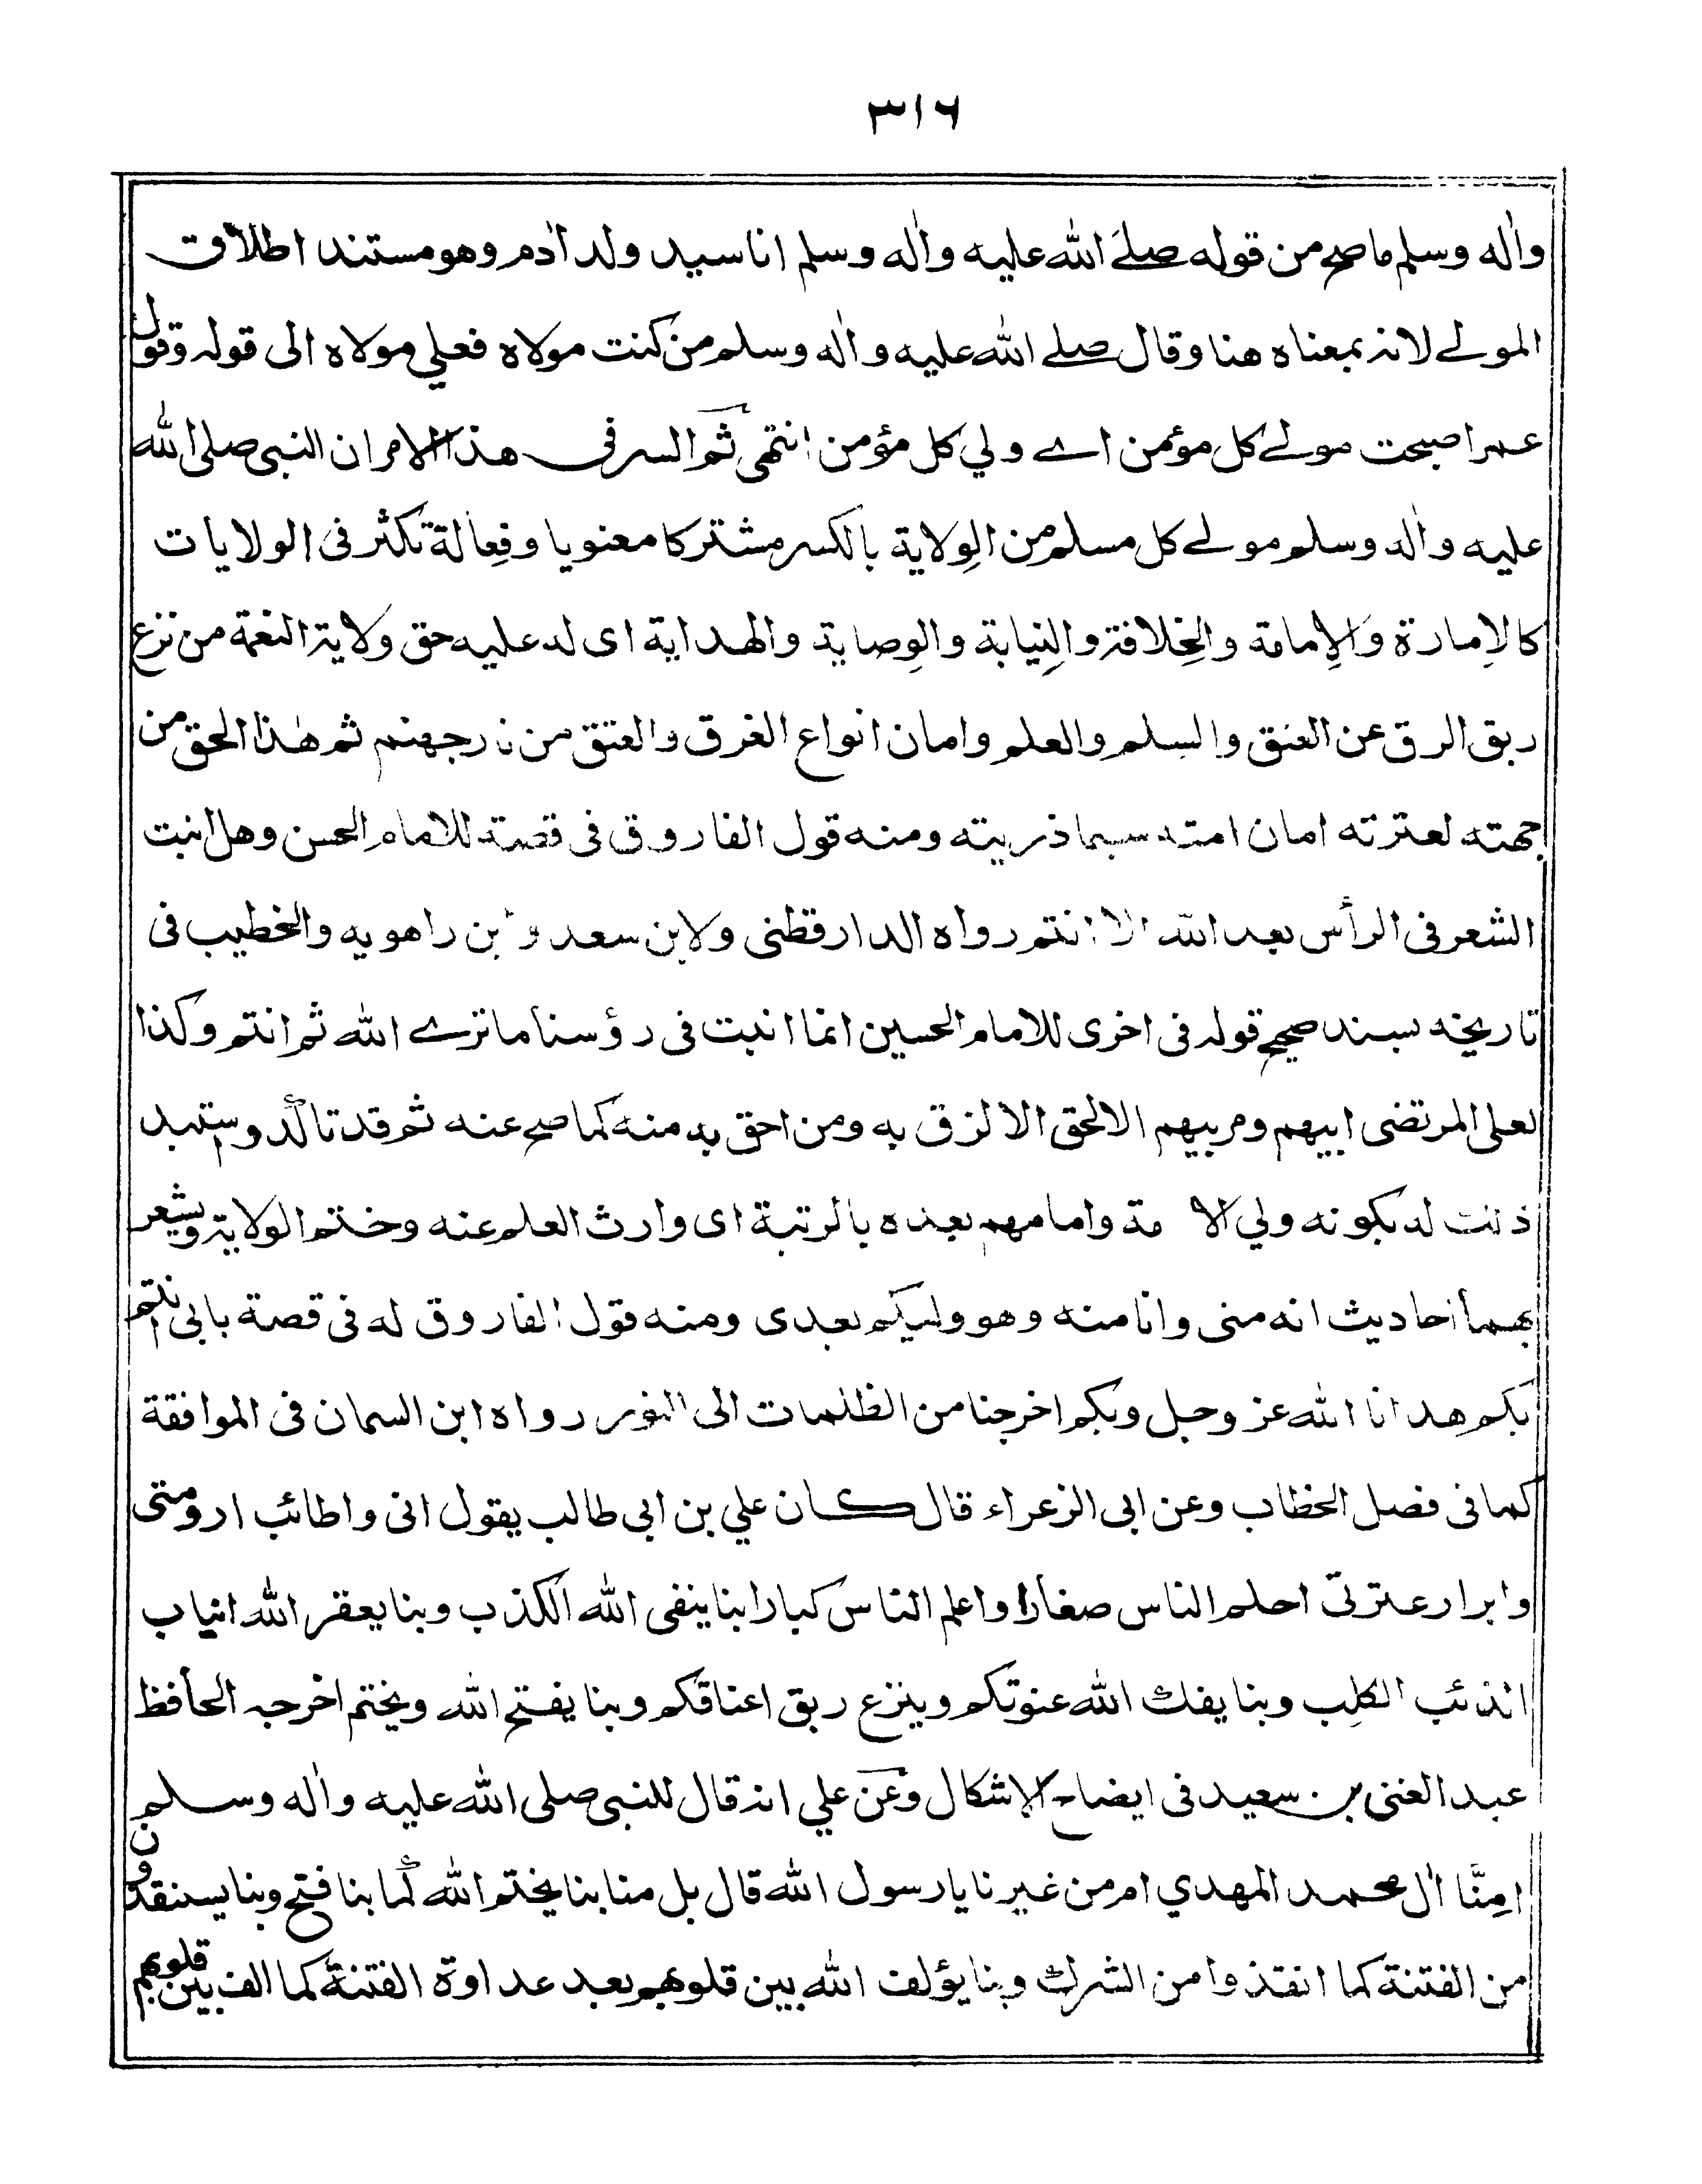 ٣١٦
واٰله وسلم ماصح من قوله صلے الله عليه واٰله وسلم انا سيد ولد اٰدم وهو مستند اطلاق
المولے لانه بمعناه هنا وقال صلے الله عليه واٰله وسلم من كنت مولاه فعلي مولاه الى قوله وقول
عمر اصبحت مولے كل مؤمن اے ولي كل مؤمن انتهى ثم السر فى هذا الامر ان النبى صلى الله
عليه واٰله وسلم مولے كل مسلم من الوِلاية بالكسر مشتركا معنويا وفِعالة تكثر فى الولايات
كالاِمارة والاِمامة والخِلافة والنِيابة والوِصاية والهداية اى له عليه حق ولاية النعمة من نزع
ربق الرق عن العنق والسلم والعلم وامان انواع الغرق والعتق من نار جهنم ثم هٰذا الحق من
جهته لعترته امان امته سيما ذريته ومنه قول الفاروق فى قصة للامام الحسن وهل انبت
الشعر فى الرأس بعد الله الا انتم رواه الدارقطنى ولابن سعد وابن راهويه والخطيب فى
تاريخه بسند صحيح قوله فى اخرى للامام الحسين انما انبت فى رؤسنا ما ترے الله ثم انتم وكذا
لعلى المرتضى ابيهم ومربيهم الالحق الالزق به ومن احق به منه كما صح عنه ثم قد تاكد واستبد
ذلك له بكونه ولي الامة وامامهم بعده بالرتبة اى وارث العلم عنه وختم الولاية ويشعر
بهما احاديث انه منى وانا منه وهو وليكم بعدى ومنه قول الفاروق له فى قصة بابى انتم
بكم هدانا الله عز وجل وبكم اخرجنا من الظلمات الى النور رواه ابن السمان فى الموافقة
كما فى فصل الخطاب وعن ابى الزعراء قال كان علي بن ابي طالب يقول انى واطائب ارومتى
وابرار عترتى احلم الناس صغارا واعلم الناس كبارا بنا ينفى الله الكذب وبنا يعقر الله انياب
الذئب الكلِب وبنا يفك الله عنوتكم وينزع ربق اعناقكم وبنا يفتح الله ويختم اخرجه الحافظ
عبد الغنى بن سعيد فى ايضاح الاشكال وعن علي انه قال للنبى صلى الله عليه واٰله وسلم
امِنَّا اٰل محمد المهدي ام من غيرنا يا رسول الله قال بل منا بنا يختم الله كما بنا فتح وبنا يستنقذون
من الفتنة كما انقذوا من الشرك وبنا يؤلف الله بين قلوبهم بعد عداوة الفتنة كما الف بين قلوبهم